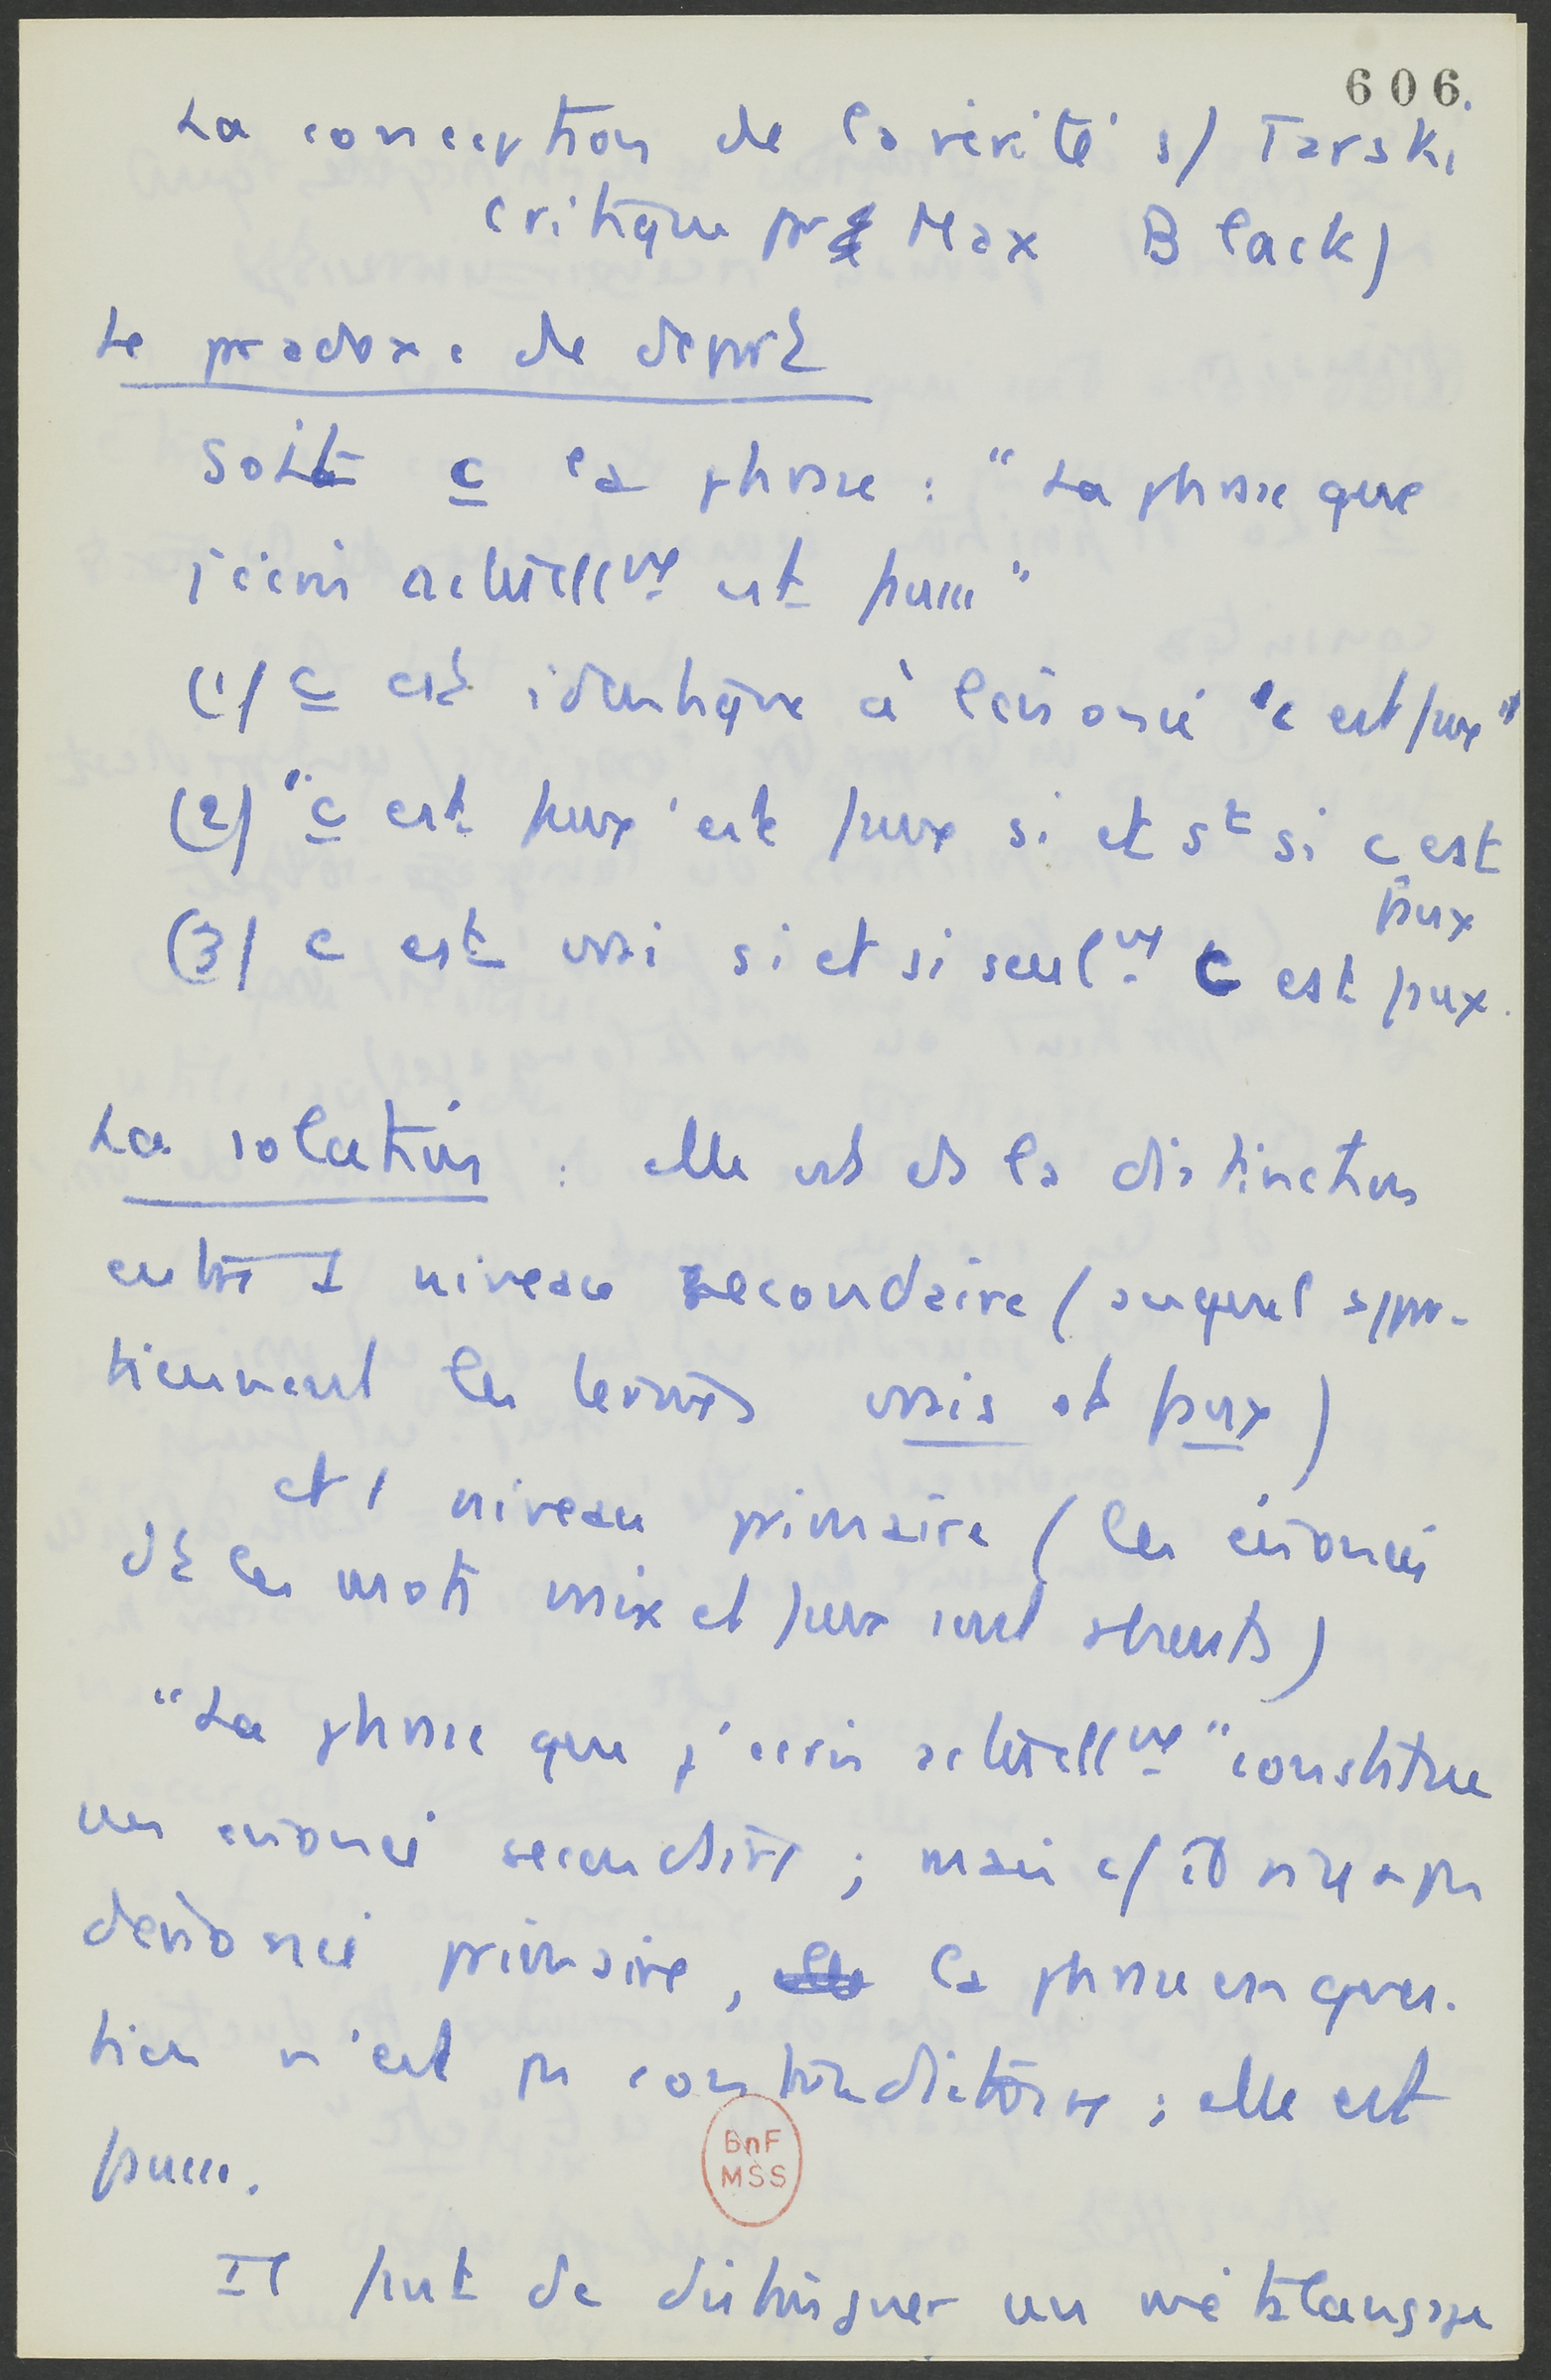 606.
La conception de la vérité s/ Tarski
critique par Max Black)
Le paradoxe de départ
Soit c la phrase : "La phrase que
j'écris actuellemt est fausse"
(1) c est identique à l'énoncé "c est faux"
(2) "c est faux" est faux si et st si c est
faux
(3) c est vrai si et si seulmt c est faux.
La solution : elle est ds la distinction
entre 1 niveau secondaire (auquel appar-
tiennent les termes vrais et faux)
et 1 niveau primaire (les énoncés
dt les mots vrix et faux sont absents)
"La phrase que j'écris actuellemt" constitue
un énoncé secondaire ; mais c/ il n'y a pas
d'énoncé primaire, la phrase en ques-
tion n'est pas contradictoire : elle est
fausse.
Il faut de distinguer un métalangage
BnF
MSS